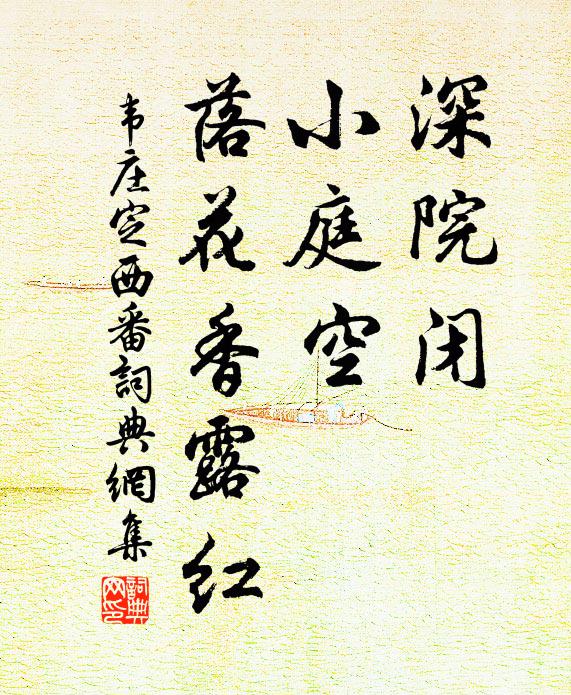 深院闭
小庭空
落花香露红
韦庄定西番詞典網集
詞典网印